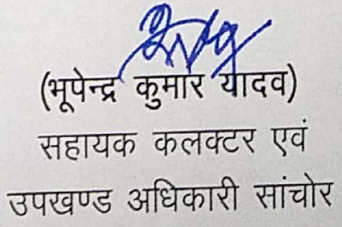 (भूपेन्द्र कुमार यादव)
सहायक कलक्टर एवं
उपखण्ड अधिकारी सांचोर